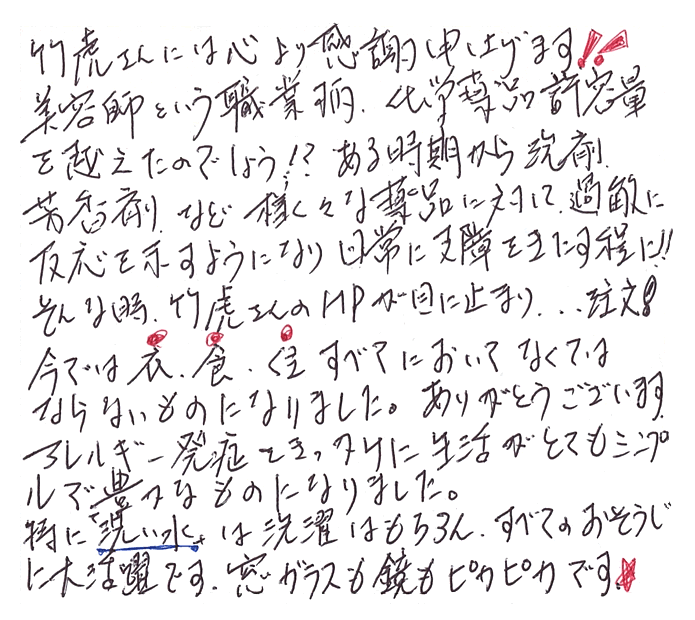 竹虎さんには心より感謝申し上げます!!
美容師という職業柄、化学薬品許容量
を越えたのでしょう!? ある時期から洗剤、
芳香剤、など様々な薬品に対して、過敏に
反応を示すようになり日常に支障をきたす程に!!
そんな時、竹虎さんのHPが目に止まり...注文!
今では衣・食・住すべてにおいてなくては
ならないものになりました。ありがとうございます。
アレルギー発症をきっかけに生活がとてもシンプ
ルで豊かなものになりました。
特に「洗い水」は洗濯はもちろん、すべてのおそうじ
に大活躍です。窓ガラスも鏡もピカピカです